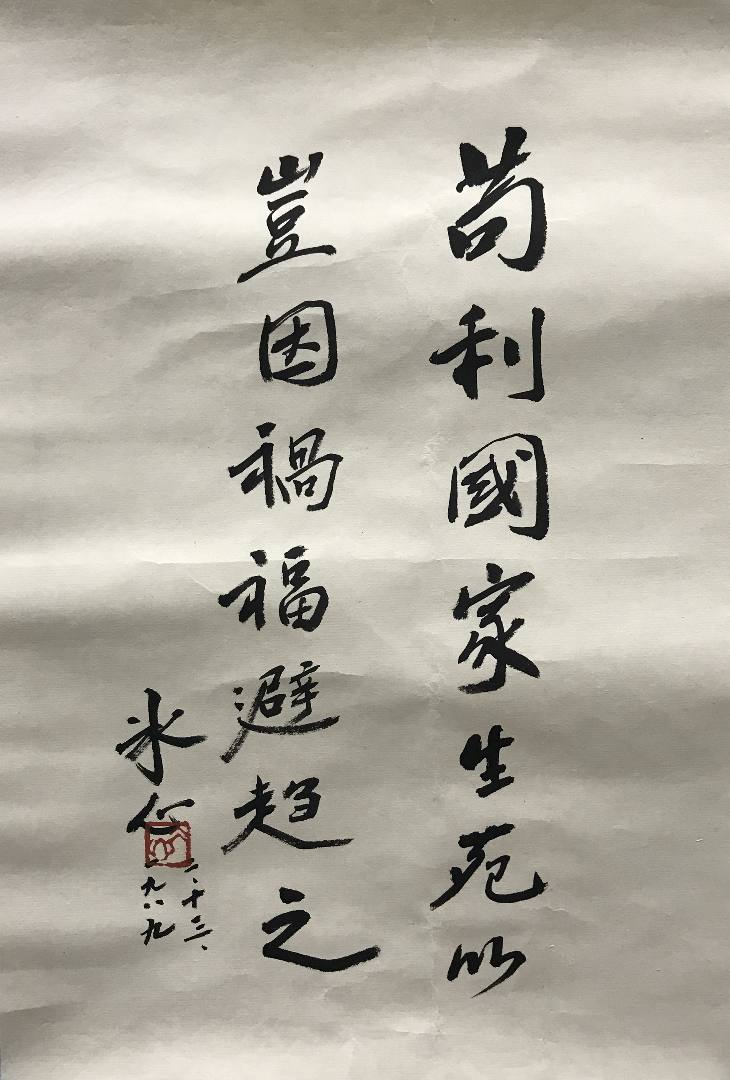 苟利國家生死以
豈因禍福避趋之
冰心
二、十三、
一九八九